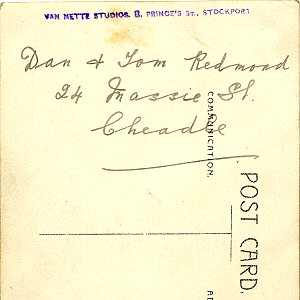 VAN METTE STUDIOS, 8, PRINCE'S ST., STOCKPORT
Dan & Tom Redmond
24 Massie St.
Cheadle
COMMUNICATION.
POST CARD.